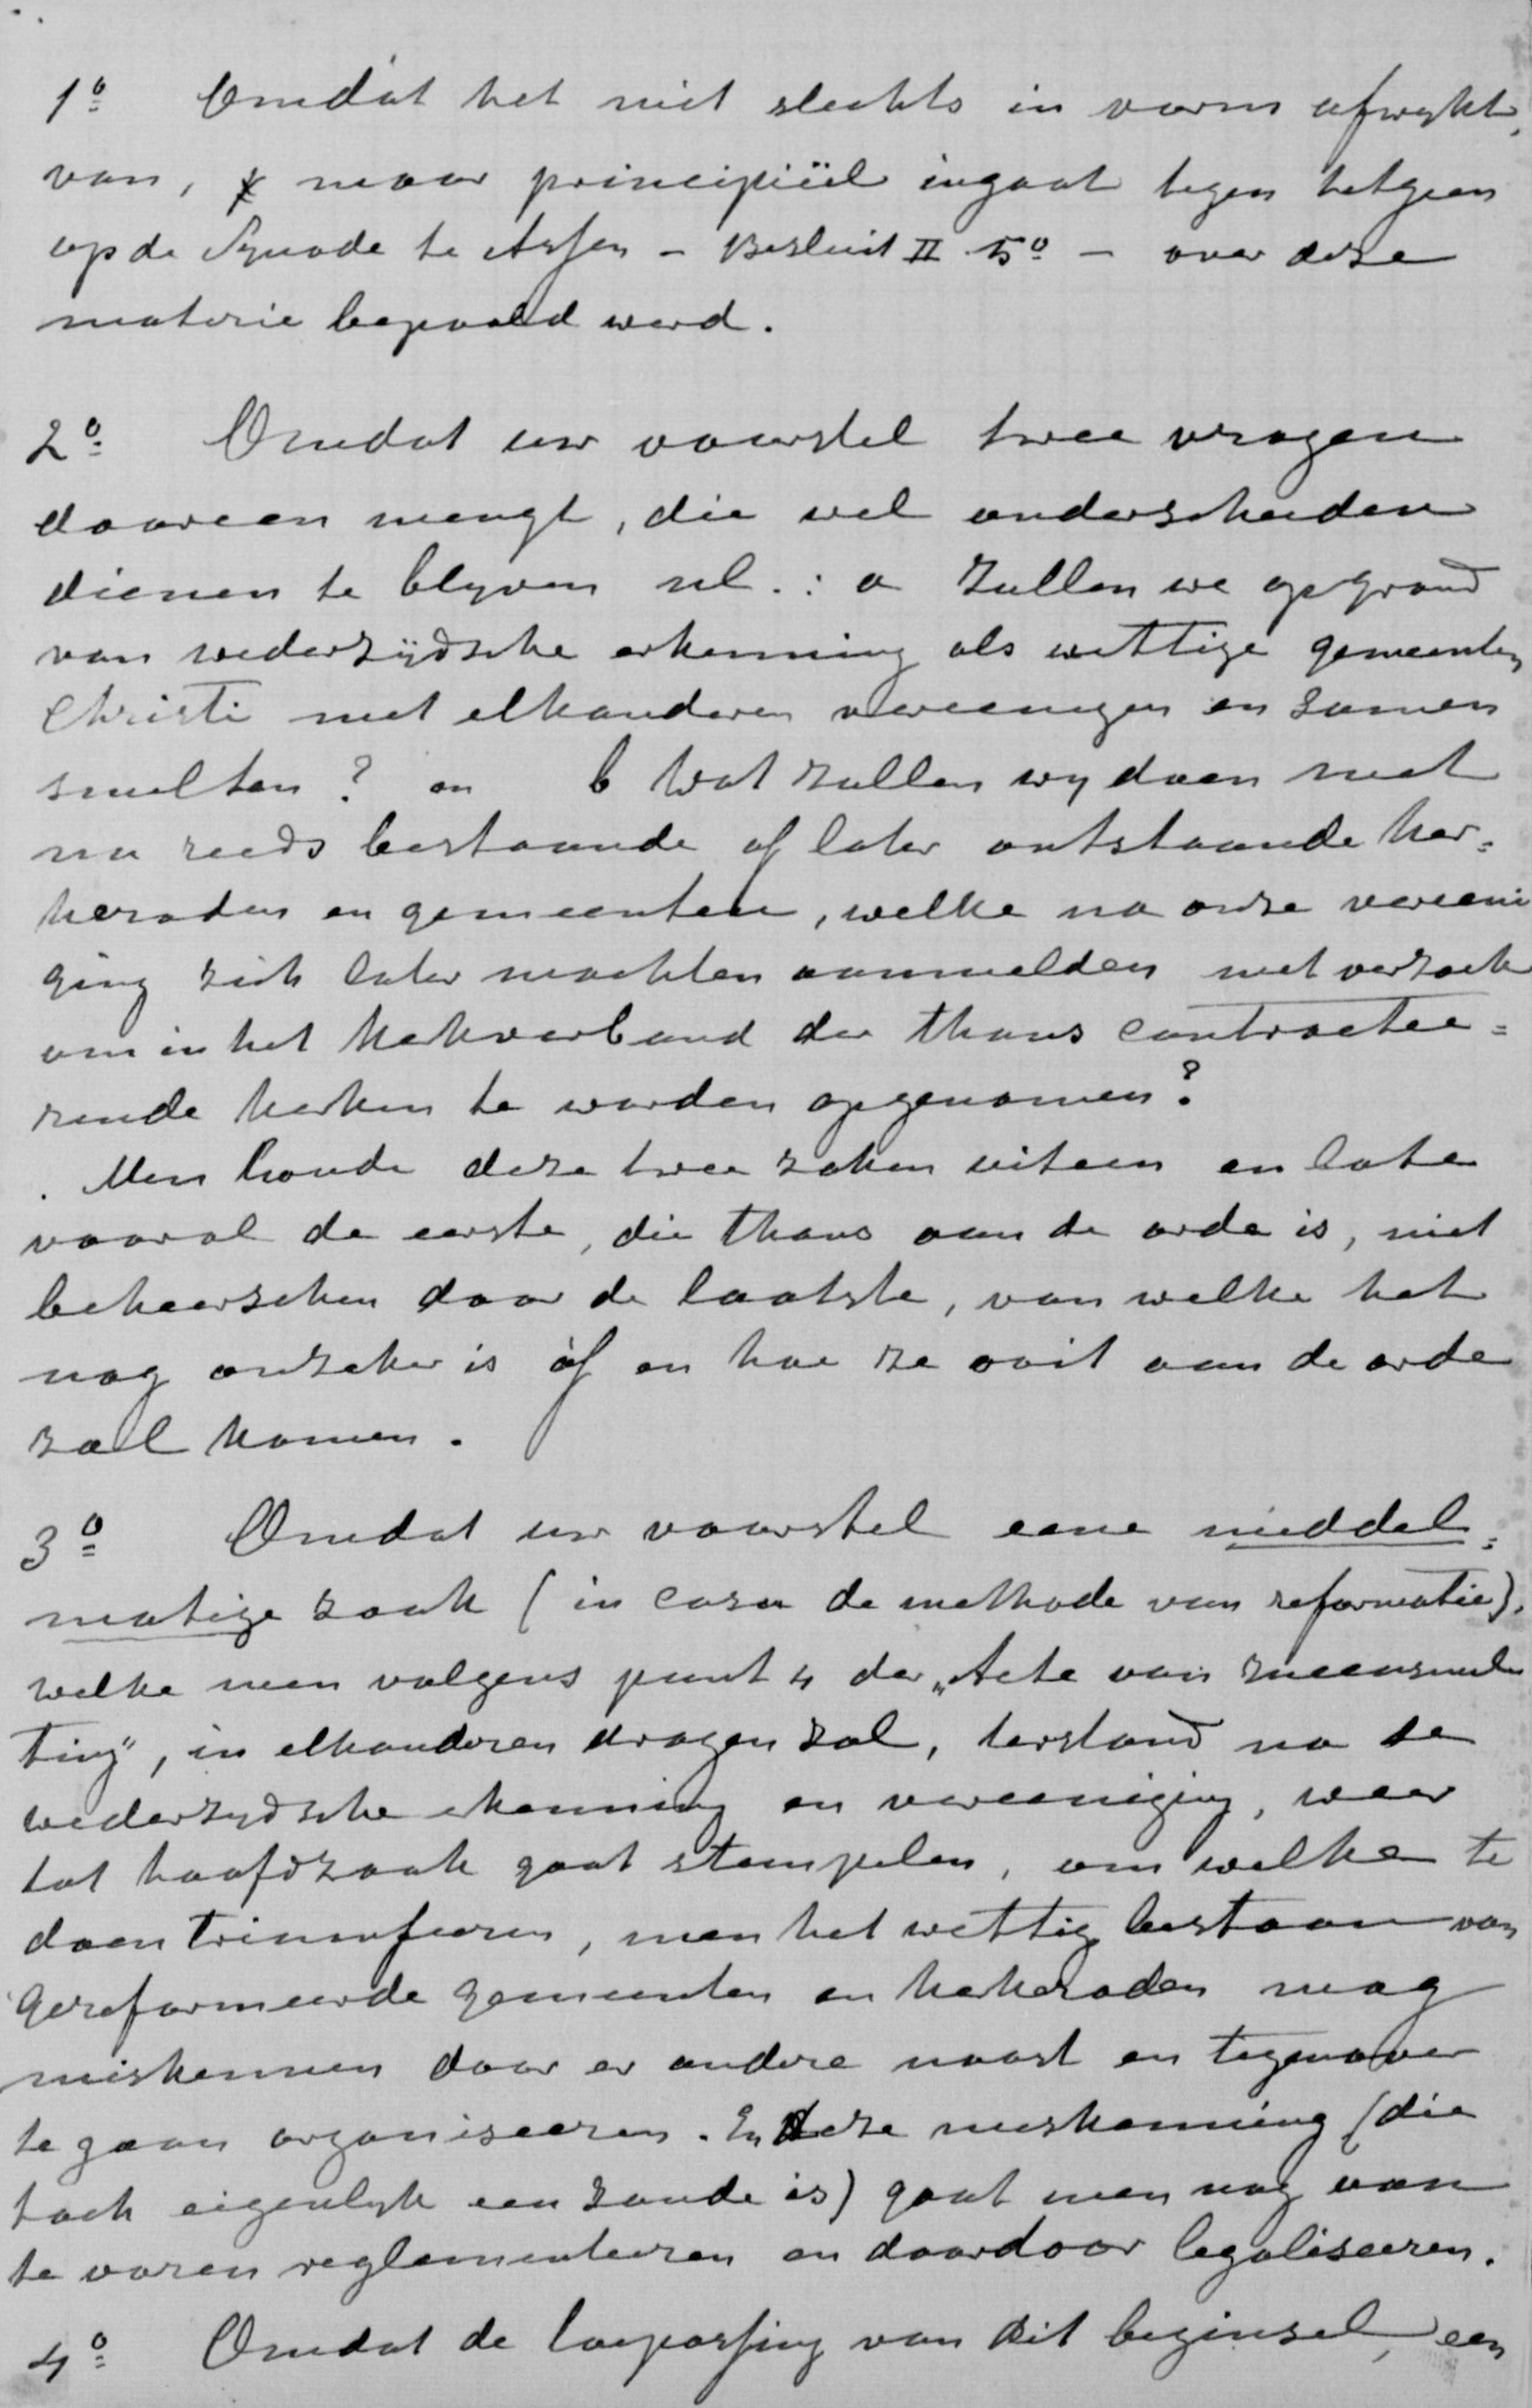 1º Omdat het niet slechts in vorm afwykt
van, maar principiëel ingaat tegen hetgeen
op de Synode te Assen - Besluit II 5º - over deze
materie bepaald werd.
2º Omdat uw voorstel twee vragen
dooreen mengt, die wel onderscheiden
dienen te blyven nl.: a Zullen we op grond
van wederzijdsche erkenning als wettige gemeenten
Christi met elkanderen vereenigen en samen
smelten? en b Wat zullen wy doen met
nu reeds bestaande of later ontstaande ker=
keraden en gemeenten, welke na onze vereeni
ging zich later mochten aanmelden met verzoek
om in het kerkverband der thans contractee=
rende kerken te worden opgenomen?
Men houde deze twee zaken uiteen en late
vooral de eerste, die thans aan de orde is, niet
beheerschen door de laatste, van welke het
nog onzeker is òf en hoe ze ooit aan de orde
zal komen.
3º Omdat uw voorstel eene middel=
matige zaak (in casu de methode van reformatie),
welke men volgens punt 4 der „Acte van Ineensmel
ting", in elkanderen dragen zal, terstond na de
wederzydsche erkenning en vereeniging, weer
tot hoofdzaak gaat stempelen, om welke te
doen triumfeeren, men het wettig bestaan van
Gereformeerde gemeenten en kerkeraden mag
miskennen door er andere naast en tegenover
te gaan organiseeren. En deze miskenning (die
toch eigenlyk een zonde is) gaat men nog van
te voren reglementeeren en daardoor legaliseeren.
4º Omdat de toepassing van dit beginsel, een